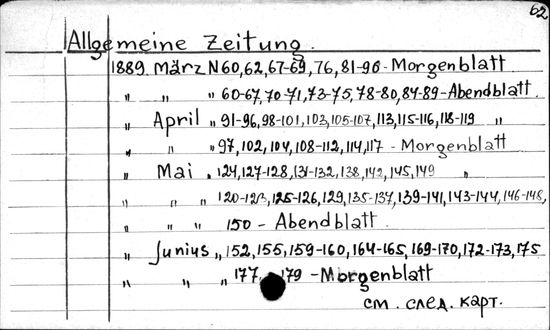 62
Allgemeine Zeitung.
1889. März N 60, 62, 67-69, 76, 81-90 - Morgenblatt
" " " 60-67, 70-71, 73-75, 78-80, 84-89 - Abendblatt.
" April " 91-96, 98-101, 103, 105-107, 113, 115-116, 118-119 "
" " " 97, 102, 104, 108-112, 114, 117 - Morgenblatt
" Mai " 124, 127-128, 131-132, 138, 142, 145, 149 "
" " " 120-123, 125-126, 129, 135-137, 139-141, 143-144, 146-148,
" " " 150 - Abendblatt.
" Junius " 152, 155, 159-160, 164-165, 169-170, 172-173, 175
" " " 177, 179 - Morgenblatt
см. след. карт.